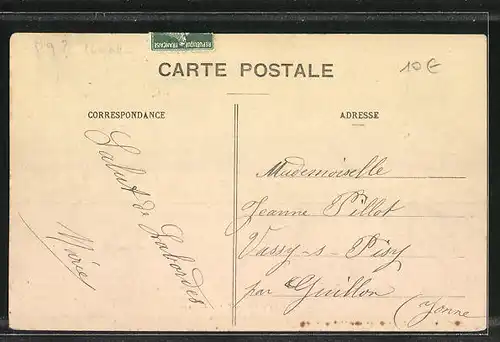 RÉPUBLIQUE FRANÇAISE
CARTE POSTALE
10€
CORRESPONDANCE
ADRESSE
Salut de Labordes.
Marie
Mademoiselle
Jeanne Pillot
Vassy-s-Pisy
par Guillon
(Yonne